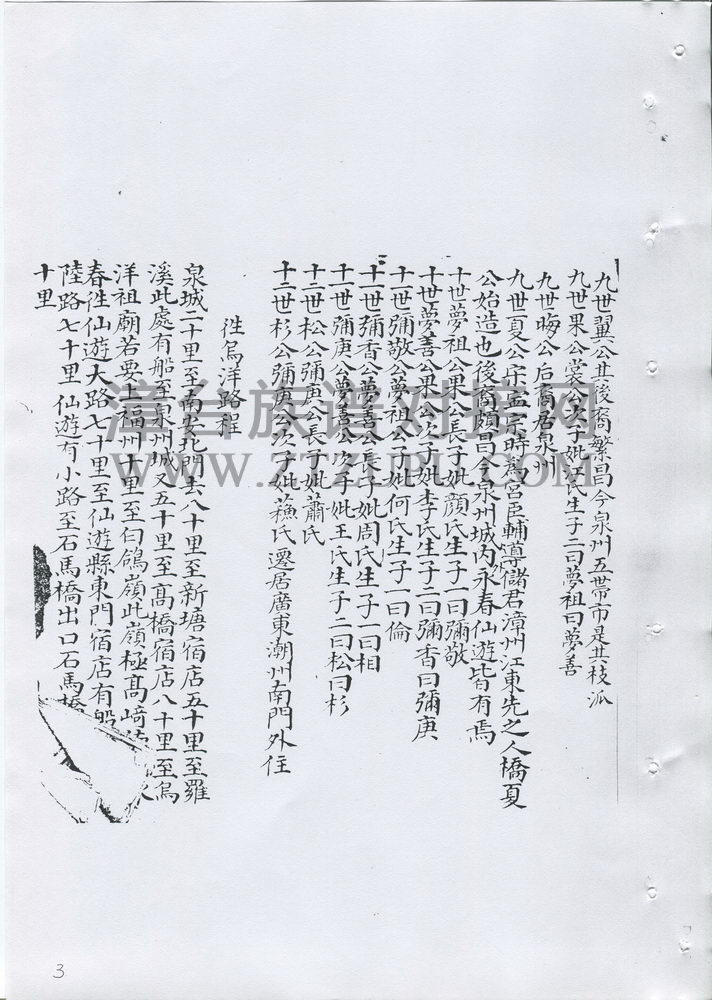 九世翼公其後裔繁昌今泉州五世市是其枝派
九世果公裳公次子妣江氏生子二曰夢祖曰夢善
九世晦公后裔居泉州
九世夏公宋孟宗時為宮臣輔導儲君漳州江東先之人橋夏
公始造也後裔頗昌今泉州城內永春仙遊皆有焉
十世夢祖公果公長子妣顏氏生子一曰彌敬
十世夢善公果公次子妣李氏生子二曰彌香曰彌庚
十一世彌敬公夢祖公子妣何氏生子一曰倫
十一世彌香公夢善公長子妣周氏生子一曰相
十一世彌庚公夢善公次子妣王氏生子二曰松曰杉
十二世松公彌庚公長子妣蕭氏
十二世杉公彌庚公次子妣蘓氏遷居廣東潮州南門外住
往烏洋路程
泉城二十里至南安北門去八十里至新塘宿店五十里至羅
溪此處有船至泉州城又五十里至高橋宿店八十里至烏
洋祖廟若要上福州十里至白鴿嶺此嶺極高崎
春往仙遊大路七十里至仙遊縣東門宿店有船
陸路七十里仙遊有小路至石馬橋出口石馬橋
十里
漳台族谱对接网
WWW.ZTZUPU.COM
3